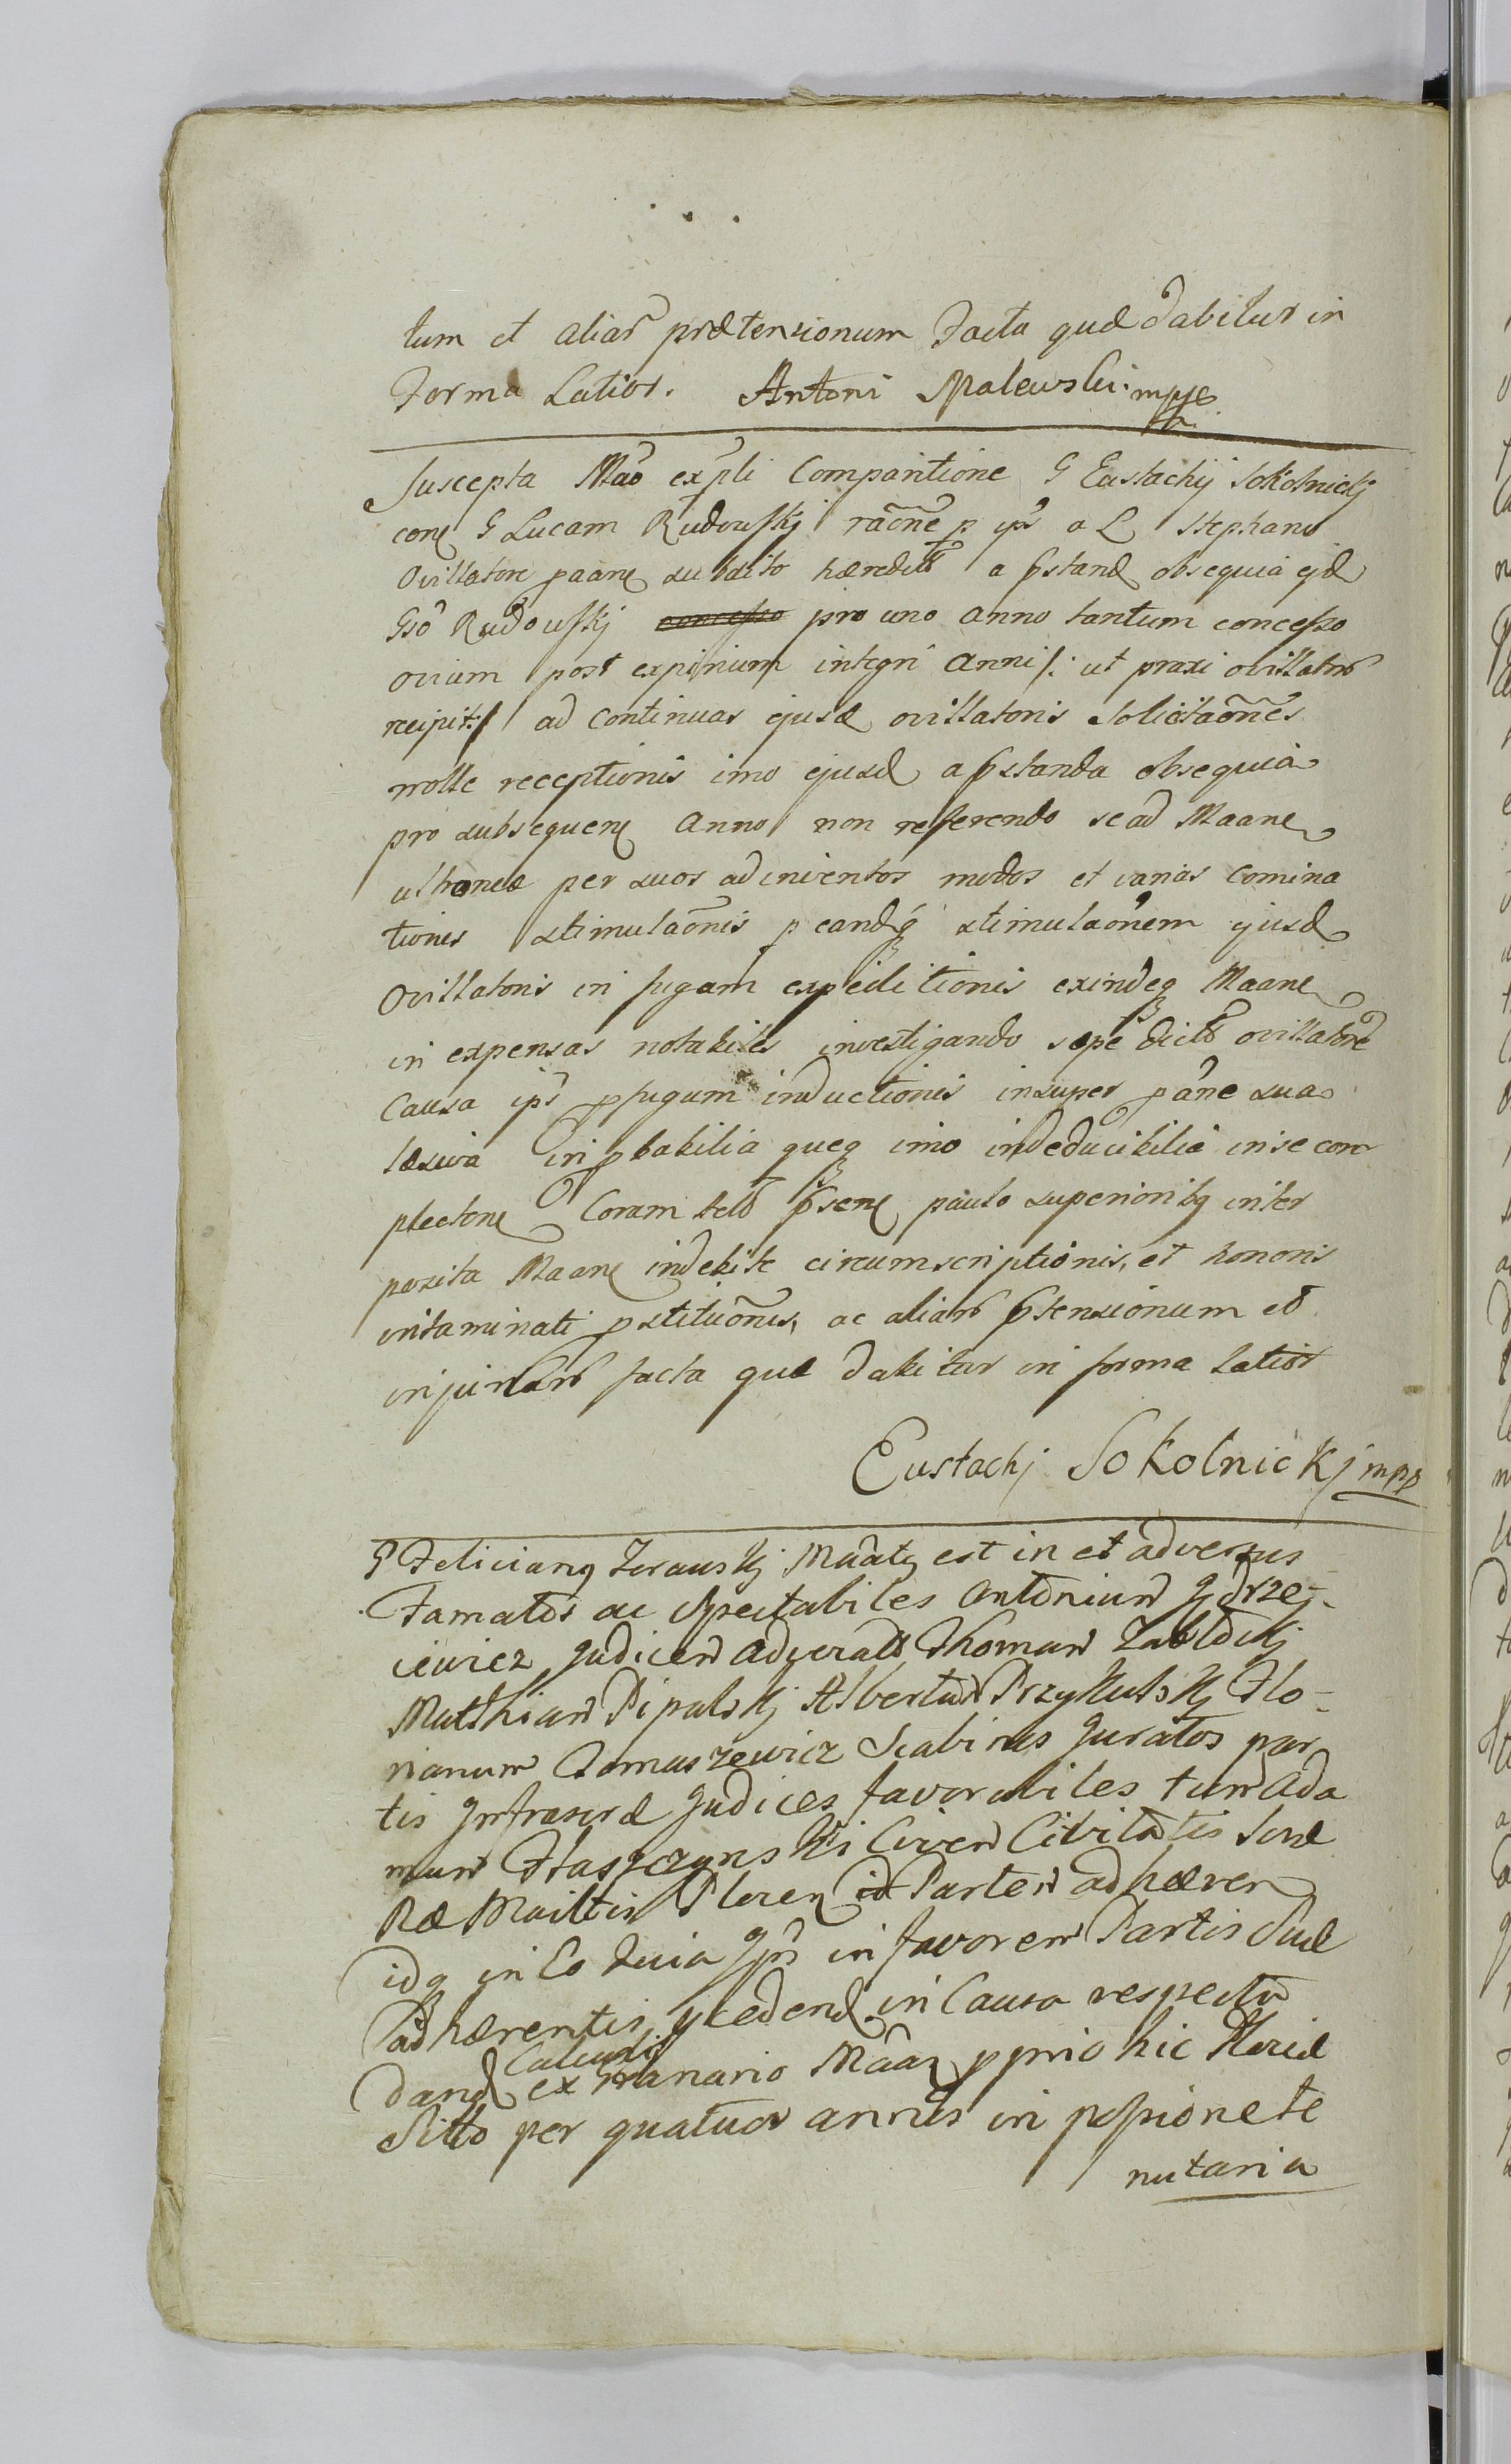 tum et aliar̃ prætensionum Facta quæ dabitur in
Forma Latior. Antoni Malewski mppe
Suscepta Mão expli Comparitione G Eustachij Sokolnickj
con G Lucam Rudowskj raõne p ips a L Stephano
Ovillatore paane subdito hæredit a pstand obsequia ejd
Gso Rudowskj concesso pro uno anno tantum concesso
ovium post expirium integri anni /: ut praxi ovillator
recipit :/ ad continuas ejusd ovillatoris Solicitaões
nolle receptionis imo ejusd a pstanda obsequia
pro subsequen Anno non referendo se ad Maane
ultronee per suos adinventos modos et varias comina
tiones stimulaõnis p eandq stimulaõnem ejusd
Ovillatoris in fugam expeditionis exindeq Maane
in expensas notabiles investigando sæpe dict ovillatore
Causa ips p fugam inductionis insuper pane sua
læsiva inpbabilia queq imo indeducibilia in se com
plecten Coram psen paulo superioritq inter
posita Maane indebite circumscriptionis, et honoris
intaminati pstituõnis, ac aliar ptensionum et
injuriar facta quæ dabitur in forma latior
Eustachj Sokolnickj mpp
G Felicianq Zorawskj Mãatq est in et adversus
Famatos ac Spectabiles Antonium Gorze-
iewicz Judicem Advocatt Thomam Zabłockj
Matthiam Pipalskj Albertum Przykutskj Flo-
rianum Tomaszewicz Scabinos Juratos par
tis Infrascræ Judices favorabiles tum Ada
mum Staszczynski Civem Civitatis
Ræ Maiestis Ploren id Partem adhæren
idq in Eo Quia Ips in favorem Partis Suæ
adhærentis pcedend in Causa respectu
dand Calculi ex Granario Mãaz pprio hic
Sitto per quatuor annos in possione te
nutaria